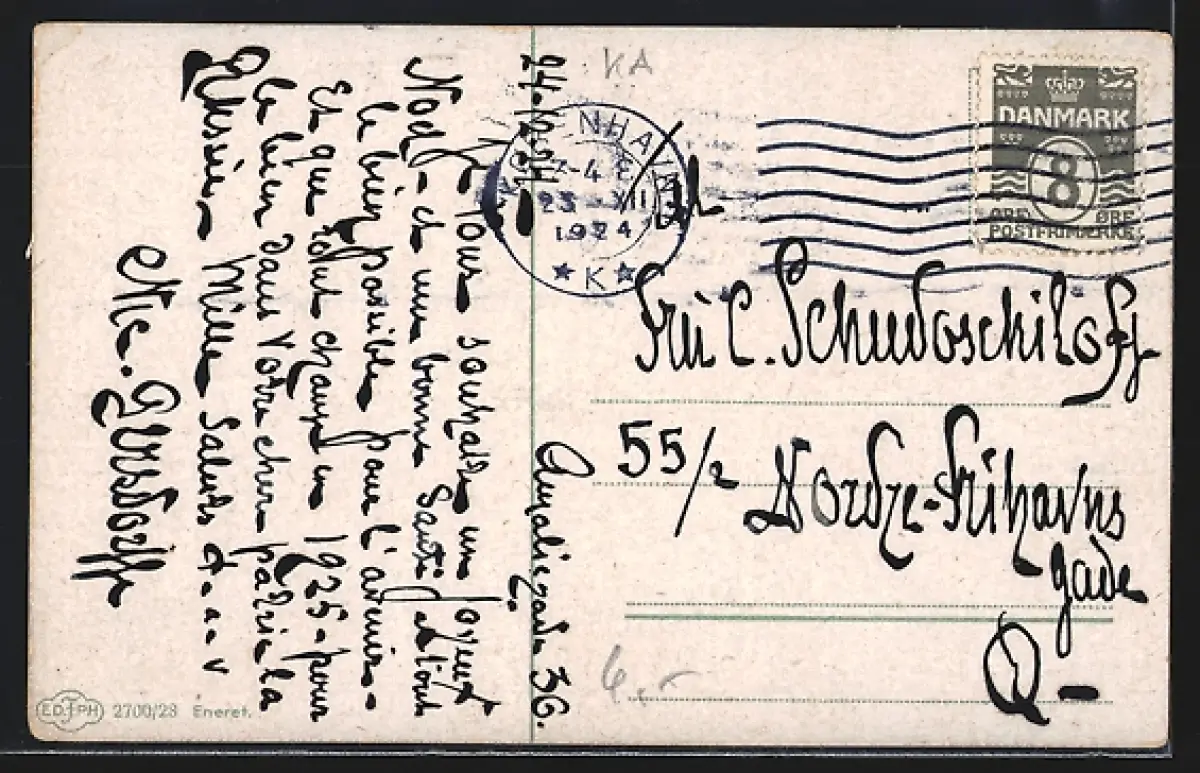 24-12-24
Amaliegade 36.
Je vous souhaite un joyeux
Noël - et une bonne Santé et tout
le bien possible pour l'avenir -
Et que tout change en 1925 - pour
le bien dans Votre chère patrie la
Russie - Mille Saluts d
KA
KØBENHAVN
23 XII
1924
★ K ★
DANMARK
8
ØRE ØRE
POSTFRIMÆRKE
Frü C. Schudoschiloff
55/2 Nordre-Frihavns
gade
Ø -
6,-
ED.F.PH 2700/28 Eneret.